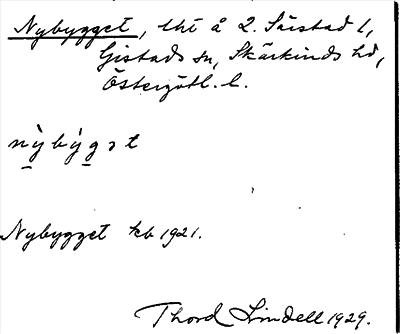 Nybygget, lht å 2. Särstad 1,
Gistads sn, Skärkinds hd,
Östergötl. l.
nỳbýgət
Nybygget kb 1921.
Thord Lindell 1929.